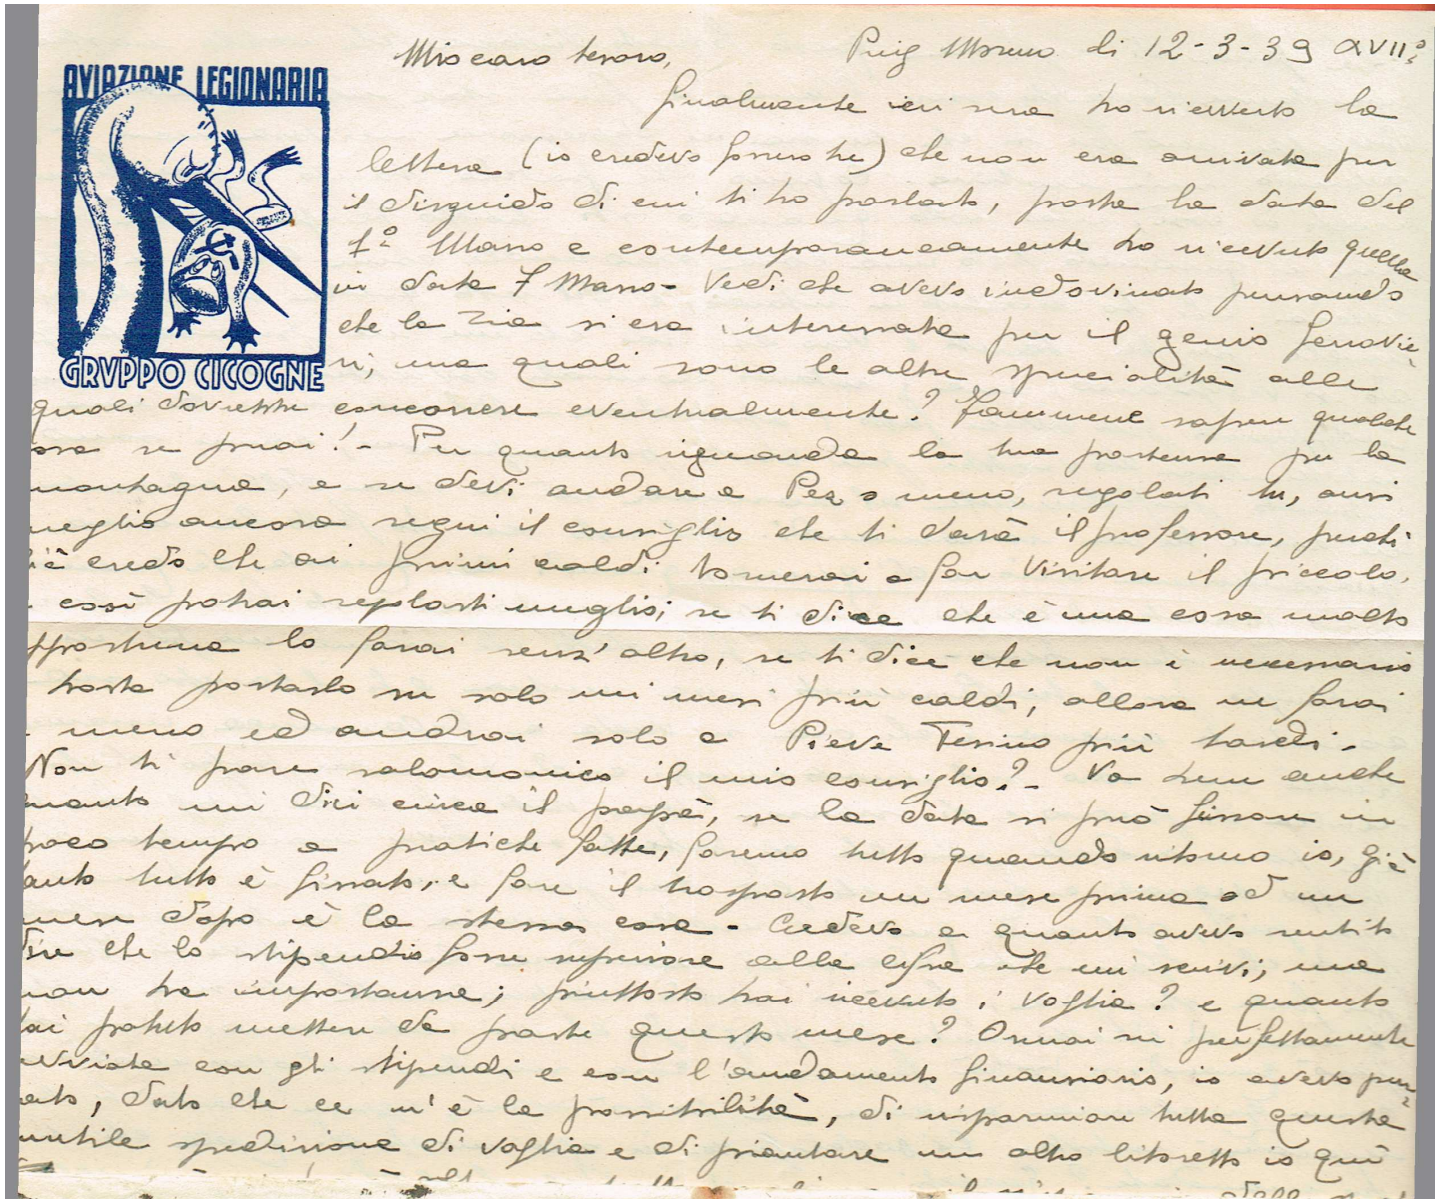 AVIAZIONE LEGIONARIA
GRVPPO CICOGNE
Mio caro tesoro,
Puig Moreno li 12-3-39 XVII°
finalmente ieri sera ho ricevuto la
lettera (io credevo fossero tre) che non era arrivata per
il disguido di cui ti ho parlato, porta la data del
1° Marzo e contemporaneamente ho ricevuto quella
in data 7 Marzo - Vedi che avevo indovinato pensando
che la zia si era interessata per il genio ferrovie=
ri, ma quali sono le altre specialità alle
quali dovrebbe concorrere eventualmente? Fammene sapere qualche
cosa se puoi! - Per quanto riguarda la tua partenza per la
montagna, e se devi andare a o meno, regolati tu, anzi
meglio ancora segui il consiglio che ti darà il professore, perchè
credo che ai primi caldi tornerai a far visitare il piccolo,
e così potrai regolarti meglio; se ti dice che è una cosa molto
opportuna lo farai senz'altro, se ti dice che non è necessario
basta portarlo su solo nei mesi più caldi, allora ne farai
a meno ed andrai solo a Pieve Tesino più tardi -
Non ti pare salomonico il mio consiglio? - Va bene anche
quanto mi dici circa il papà, se la data si può fissare in
poco tempo a pratiche fatte, faremo tutto quando ritorno io, già
tanto tutto è fissato, e fare il trasporto un mese prima od un
mese dopo è la stessa cosa - Credevo a quanto avevo sentito
dire che lo stipendio fosse superiore alla cifra che mi scrivi; ma
non ha importanza; piuttosto hai ricevuto i vaglia? e quanto
hai potuto mettere da parte questo mese? Ormai sei perfettamente
avviata con gli stipendi e con l'andamento finanziario, io avevo pen=
sato, dato che ce n'è la possibilità, di risparmiare tutta questa
inutile spedizione di vaglia e di piantare un altro libretto io quì